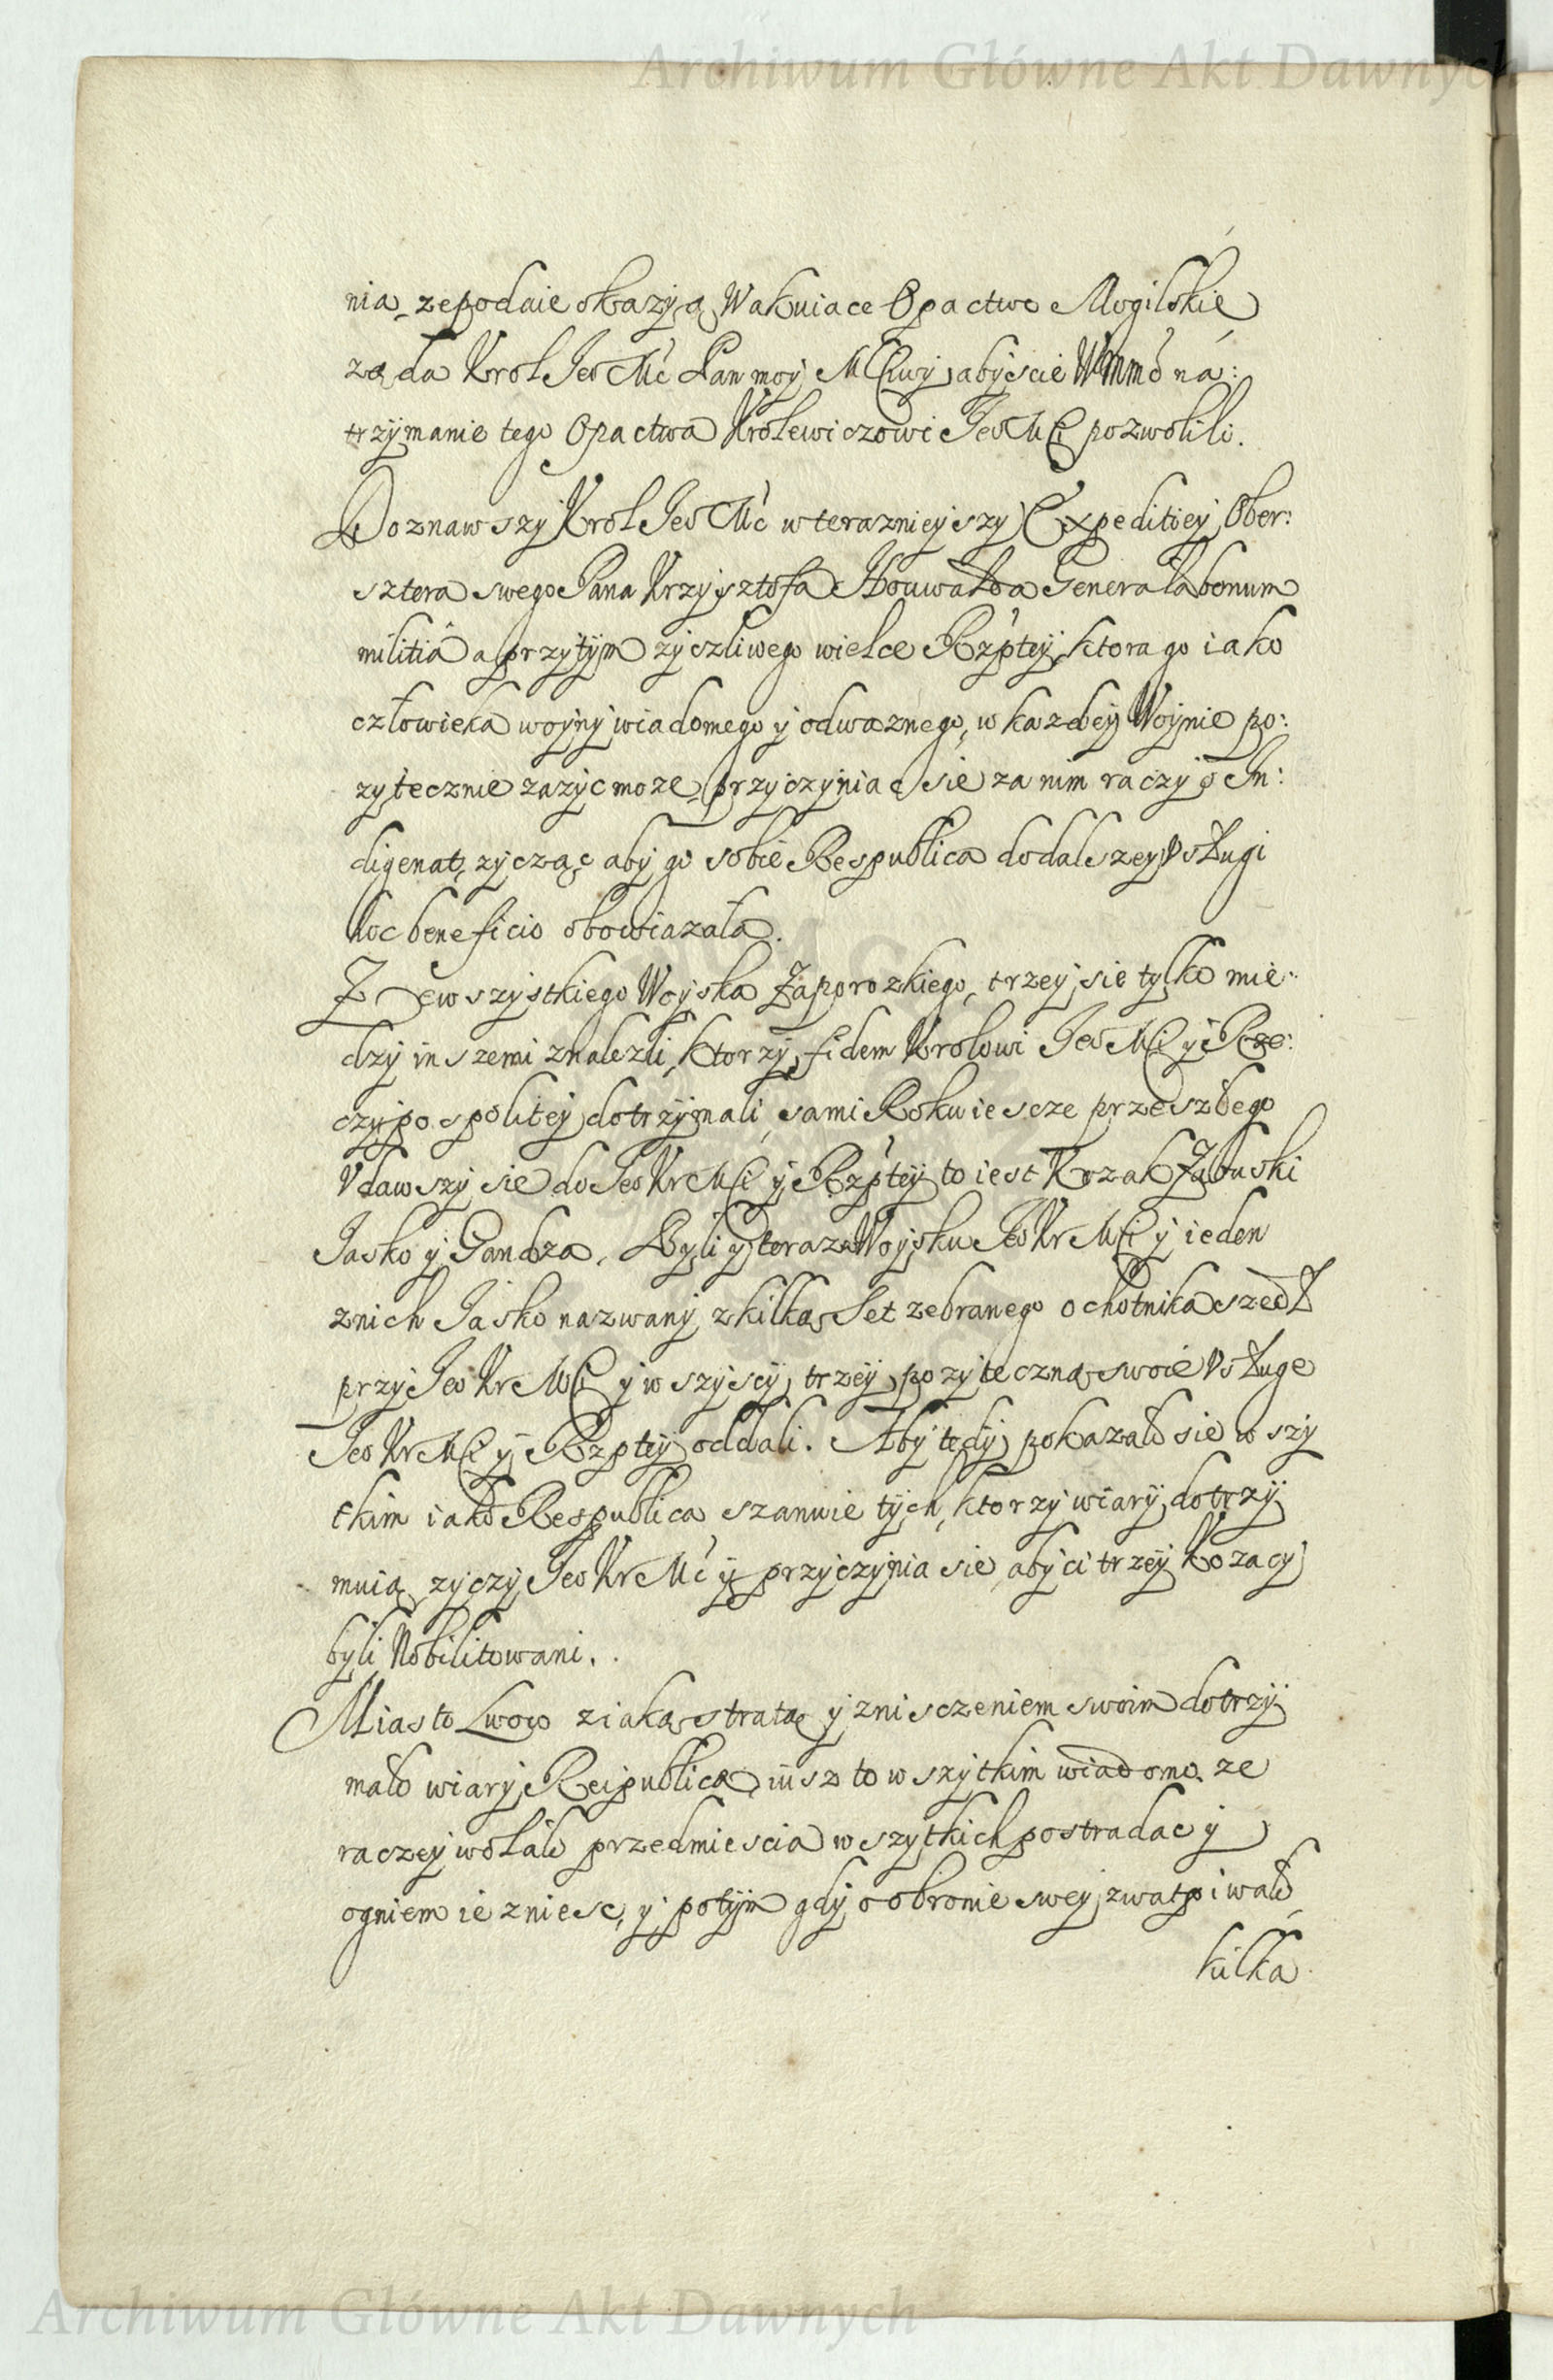 Archiwum Główne Akt Dawnych
nia, ze podaie okazyą Wakuiace Opactwo Mogilskie
ząda Krol Jeo Mć Pan moy Mćiwy, abyscie WMmć na:
trzymanie tego Opactwa Krolewiczowi Jeo Mći pozwolili.
Doznawszy Krol Jeo Mć w teraznieyszy Expeditiey Ober:
sztera swego Pana Krzysztofa Houwalda Generała bonum
militiâ a przytym zyczliwego wielce Rzptey, ktora go iako
człowieka woyny wiadomego y odwaznego, w kazdey Woynie po:
zytecznie zazyc moze, przyczyniac sie za nim raczy o In:
digenat, zycząc aby go sobie Respublica do dalszey Vsługi
hoc beneficio obowiazała.
Ze wszystkiego Woyska Zaporozkiego, trzey sie tylko mie:
dzy inszemi znalezli, ktorzy fidem Krolowi Jeo Mći y Rze:
czypospolitey dotrzymali, sami Roku iescze przeszłego
Vdawszy sie do Jeo Kr Mći y Rzptey to iest Kozak Zabuski
Jasko y Gandza. Byli y teraz w Woysku Jeo Kr Mći y ieden
znich Jasko nazwany z kilką set zebranego ochotnika szedł
przy Jeo Kr Mći y wszyscy trzey pozyteczną swoię Vsługe
Jeo Kr Mći y Rzptey oddali. Aby tedy pokazało sie wszy
tkim iako Respublica szanuie tych, ktorzy wiary dotrzy
muią zyczy Jeo Kr Mć y przyczynia sie aby ci trzey Kozacy
byli Nobilitowani.
Miasto Lwow z iaką stratą y znisczeniem swoim dotrzy
mało wiary Reipublicæ, iusz to wszytkim wiadomo, ze
raczey wolało przedmiescia wszytkich postradac y
ogniem ie zniesc, y potym gdy o obronie swey zwątpiwało
kilka
Archiwum Główne Akt Dawnych